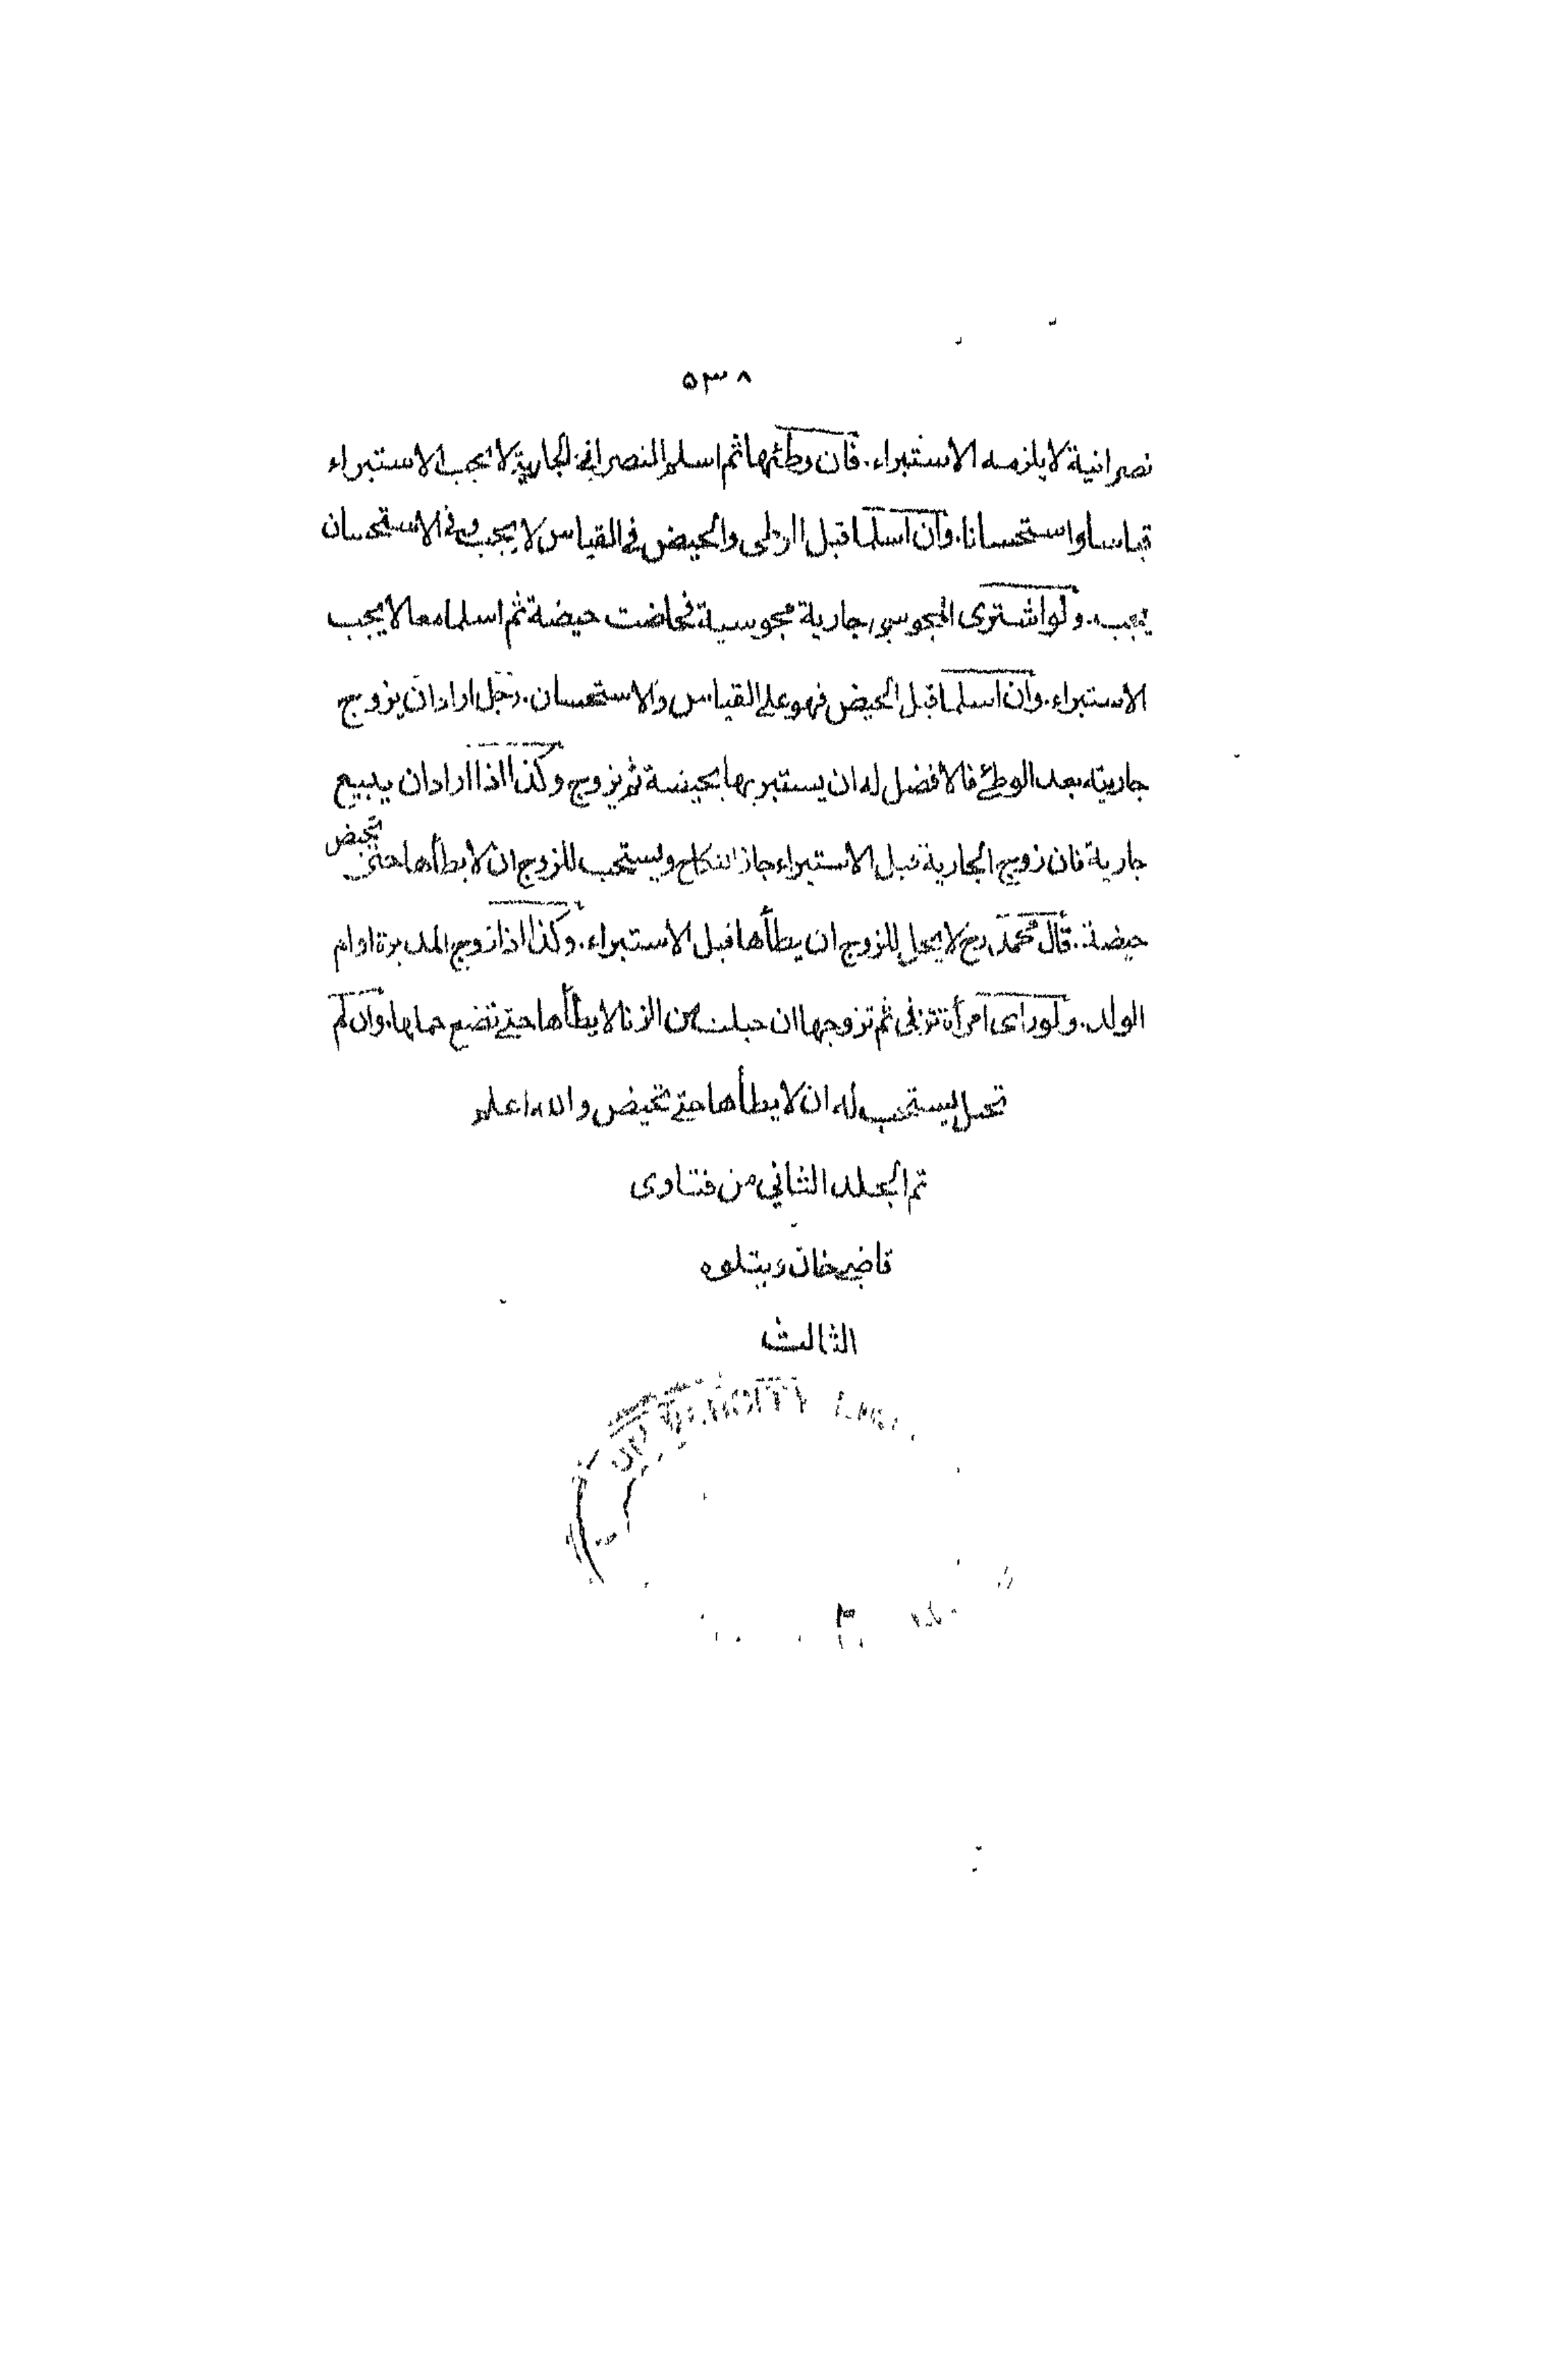 ٥٣٨
نصرانية لا يلزمه الاستبراء. فان وطئها ثم اسلم النصراني الجارية لا يجب الاستبراء
قياسا واستحسانا. وان اسلما قبل الوطي والحيض في القياس لا يجب وفي الاستحسان
يجب. ولو اشترى المجوسي جارية مجوسية فحاضت حيضة ثم اسلما معا لا يجب
الاستبراء. وان اسلما قبل الحيض فهو على القياس والاستحسان. رجل اراد ان يزوج
جاريته بعد الوطئ فالافضل له ان يستبر بها بحيضة ثم يزوج وكذا اذا اراد ان يبيع
جارية فان زوج الجارية قبل الاستبراء جاز النكاح ويستحب للزوج ان لا يطأها حتى تحيض
حيضة. قال محمد رح لا يحل للزوج ان يطأها قبل الاستبراء. وكذا اذا زوج المدبرة او ام
الولد. ولو رأى امرأة تزني ثم تزوجها ان حبلت من الزنا لا يطأها حتى تضع حملها. وان لم
تحبل يستحب له ان لا يطأها حتى تحيض والله اعلم
تم الجلد الثاني من فتاوى
قاضي خان ويتلوه
الثالث